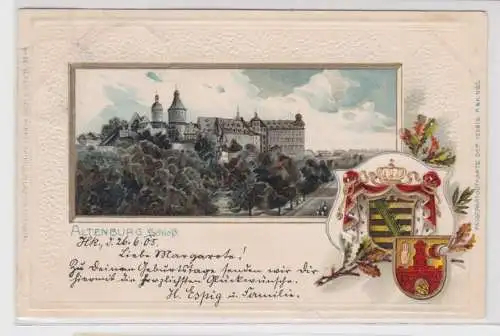 ALTENBURG Schloß
Hk, d. 26.6.05.
Liebe Margarete!
Zu Deinem Geburtstage senden wir dir
hiermit die herzlichsten Glückwünsche.
H. Espig u. Familie.